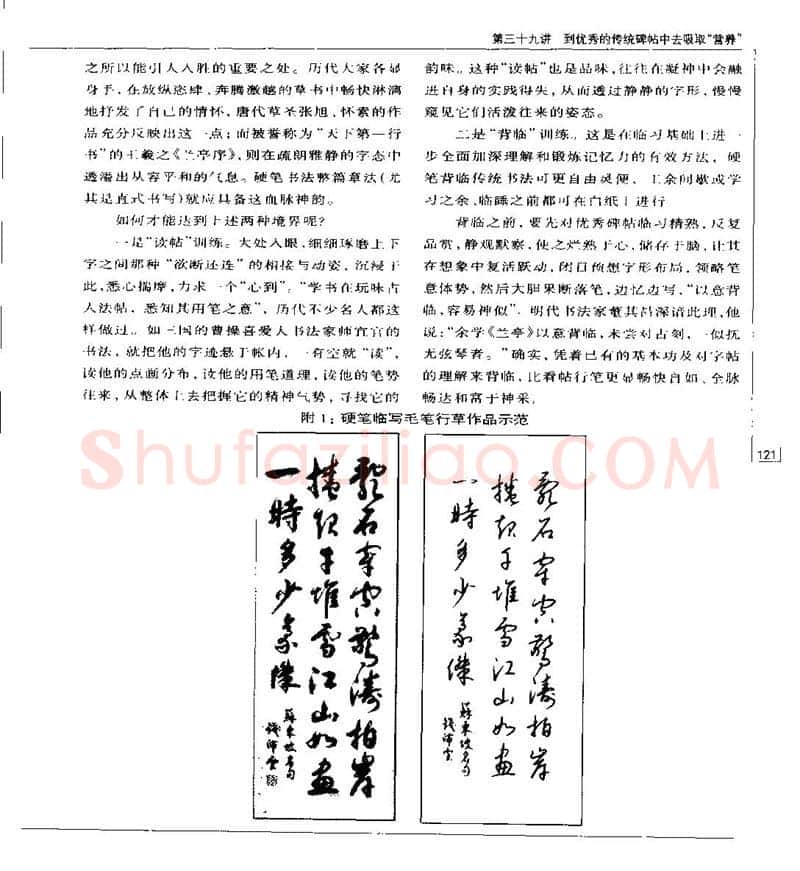 第三十九讲 到优秀的传统碑帖中去吸取“营养”
之所以能引人入胜的重要之处。历代大家各显
身手，在放纵恣肆，奔腾激越的草书中畅快淋漓
地抒发了自己的情怀，唐代草圣张旭，怀素的作
品充分反映出这一点；而被誉称为“天下第一行
书”的王羲之《兰亭序》，则在疏朗雅静的字态中
透溢出从容平和的气息。硬笔书法整篇章法（尤
其是直式书写）就应具备这血脉神韵。
如何才能达到上述两种境界呢？
一是“读帖”训练。大处入眼，细细琢磨上下
字之间那种“欲断还连”的相接与动姿，沉浸于
此，悉心揣摩，力求一个“心到”。“学书在玩味古
人法帖，悉知其用笔之意”，历代不少名人都这
样做过。如三国的曹操喜爱大书法家师宜官的
书法，就把他的字迹悬于帐内，一有空就“读”，
读他的点画分布，读他的用笔道理，读他的笔势
往来，从整体上去把握它的精神气势，寻找它的
韵味。这种“读帖”也是品味，往往在凝神中会融
进自身的实践得失，从而透过静静的字形，慢慢
窥见它们活泼往来的姿态。
二是“背临”训练。这是在临习基础上进一
步全面加深理解和锻炼记忆力的有效方法，硬
笔背临传统书法可更自由灵便，工余间歇或学
习之余，临睡之前都可在白纸上进行
背临之前，要先对优秀碑帖临习精熟，反复
品赏，静观默察，使之烂熟于心，储存于脑，让其
在想象中复活跃动，闭目预想字形布局，领略笔
意体势，然后大胆果断落笔，边忆边写，“以意背
临，容易神似”。明代书法家董其昌深谙此理，他
说：“余学《兰亭》以意背临，未尝对古刻，一似抚
无弦琴者。”确实，凭着已有的基本功及对字帖
的理解来背临，比看帖行笔更显畅快自如、全脉
畅达和富于神采。
附1：硬笔临写毛笔行草作品示范
Shufaziliao.COM
121
乱石穿空驚濤拍岸
捲起千堆雪江山如画
一時多少豪傑
蘇東坡名句
錢沛雲
乱石穿空驚濤拍岸
捲起千堆雪江山如画
一時多少豪傑
蘇東坡名句
錢沛雲